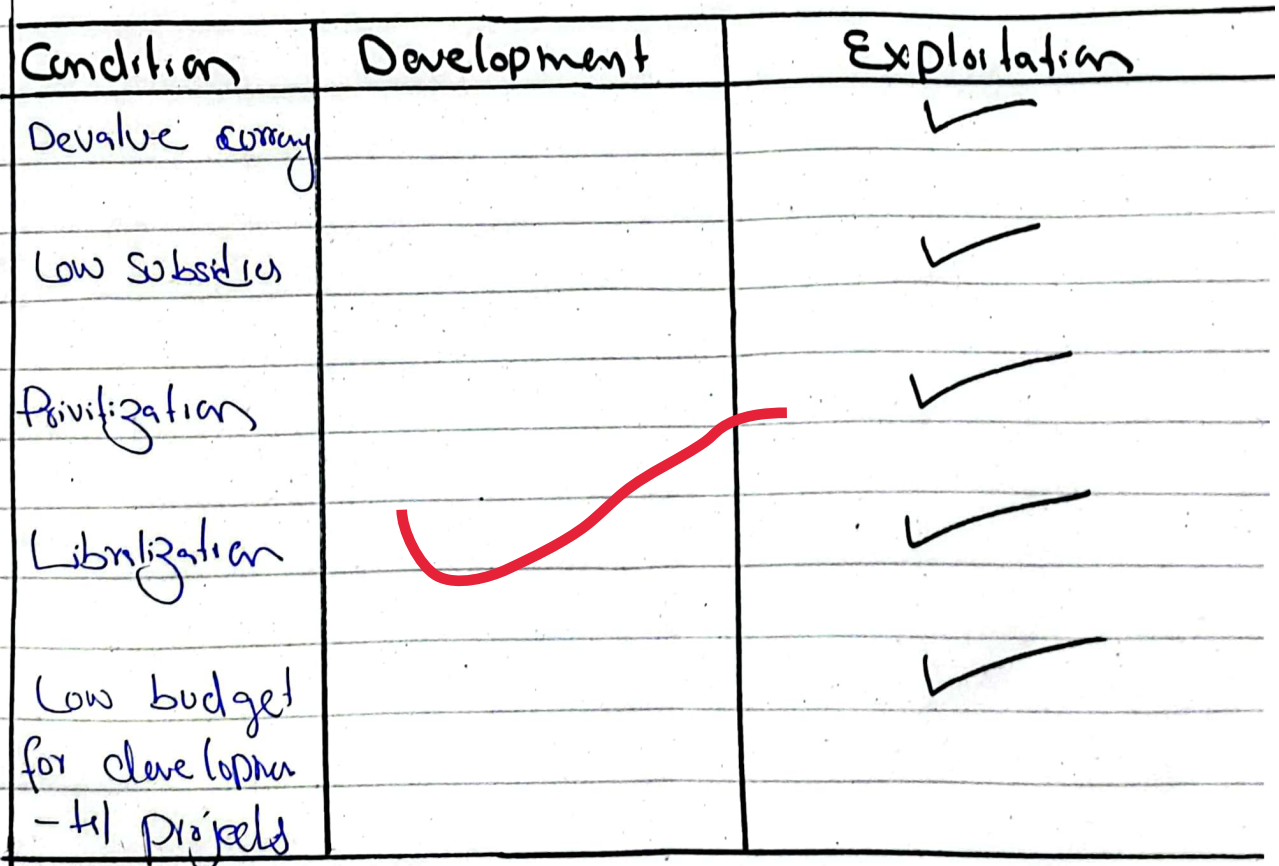 Condition Development Exploitation
Devalue ✓
Low subsidies ✓
Privitization ✓
Libralization ✓
Low budget ✓
for developme
-tal projects